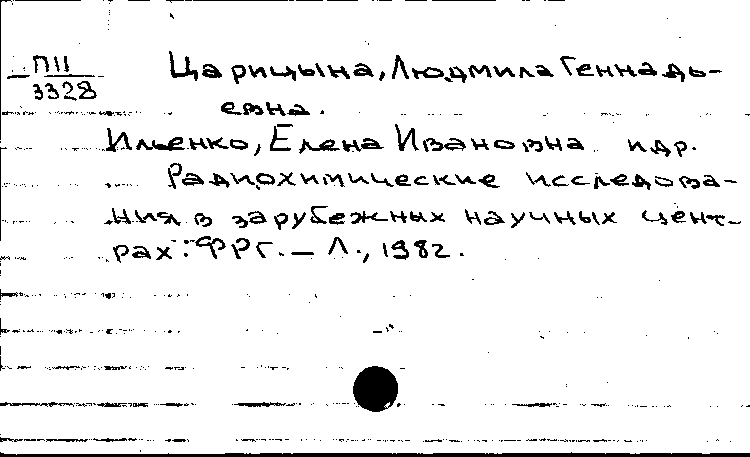 П11
3328
Царицына, Людмила Геннадь-
евна.
Ильенко, Елена Ивановна и др.
Радиохимические исследова-
ния в зарубежных научных цент-
рах: ФРГ. – Л., 1982.